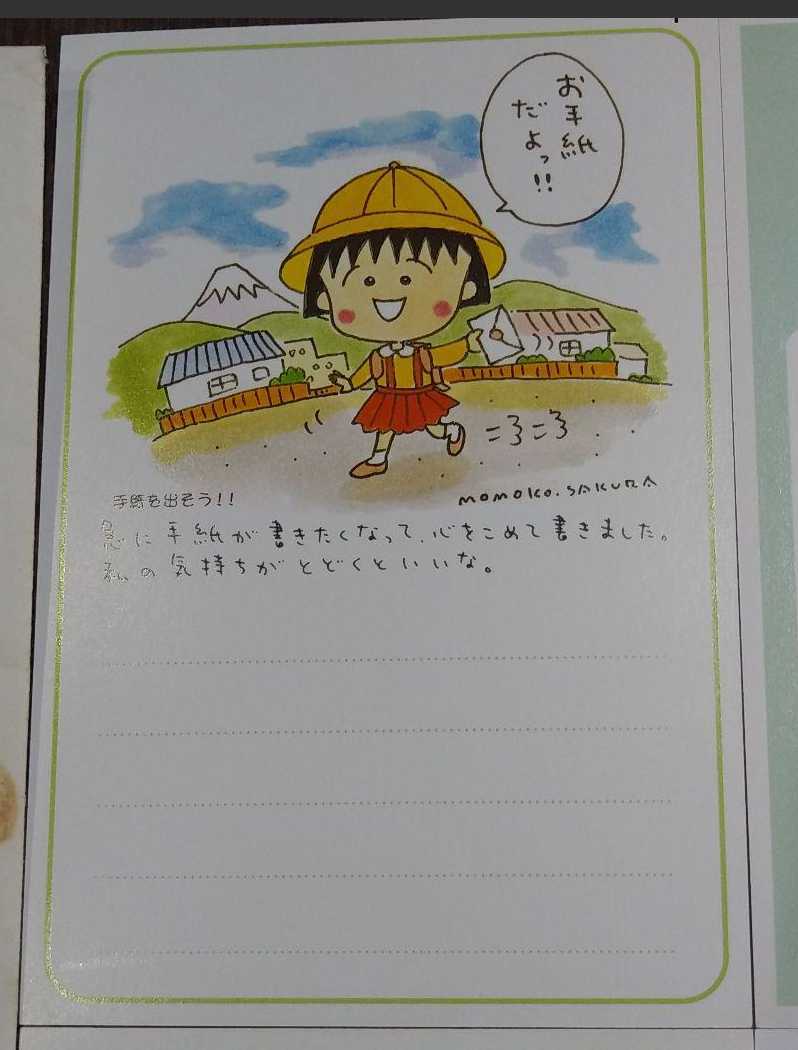 お手紙
だよっ!!
ころころ
手紙を出そう!!
MOMOKO.SAKURA
急に手紙が書きたくなって、心をこめて書きました。
私の気持ちがとどくといいな。